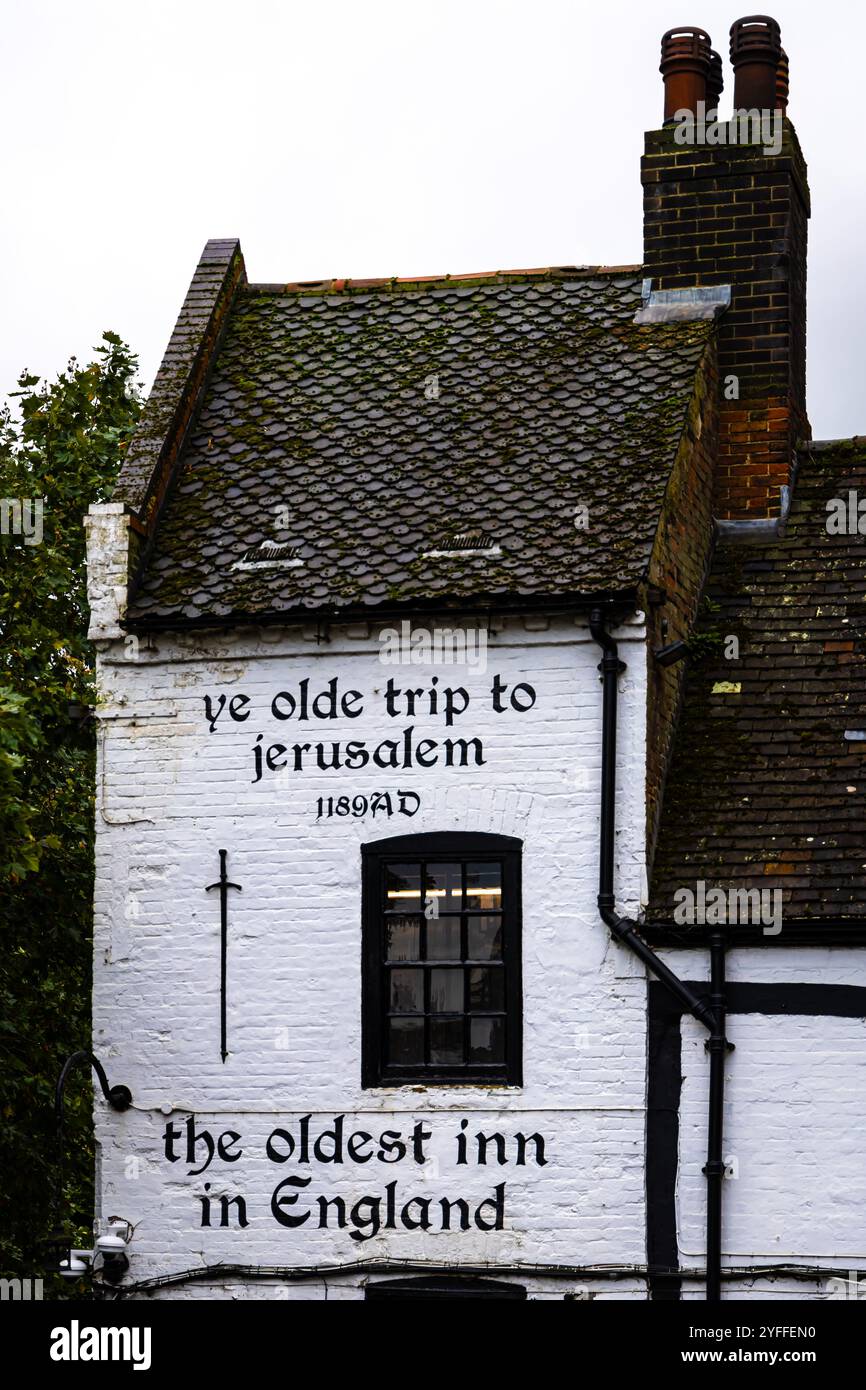 ye olde trip to
jerusalem
1189AD
the oldest inn
in England
alamy
Image ID: 2YFFEN0
www.alamy.com